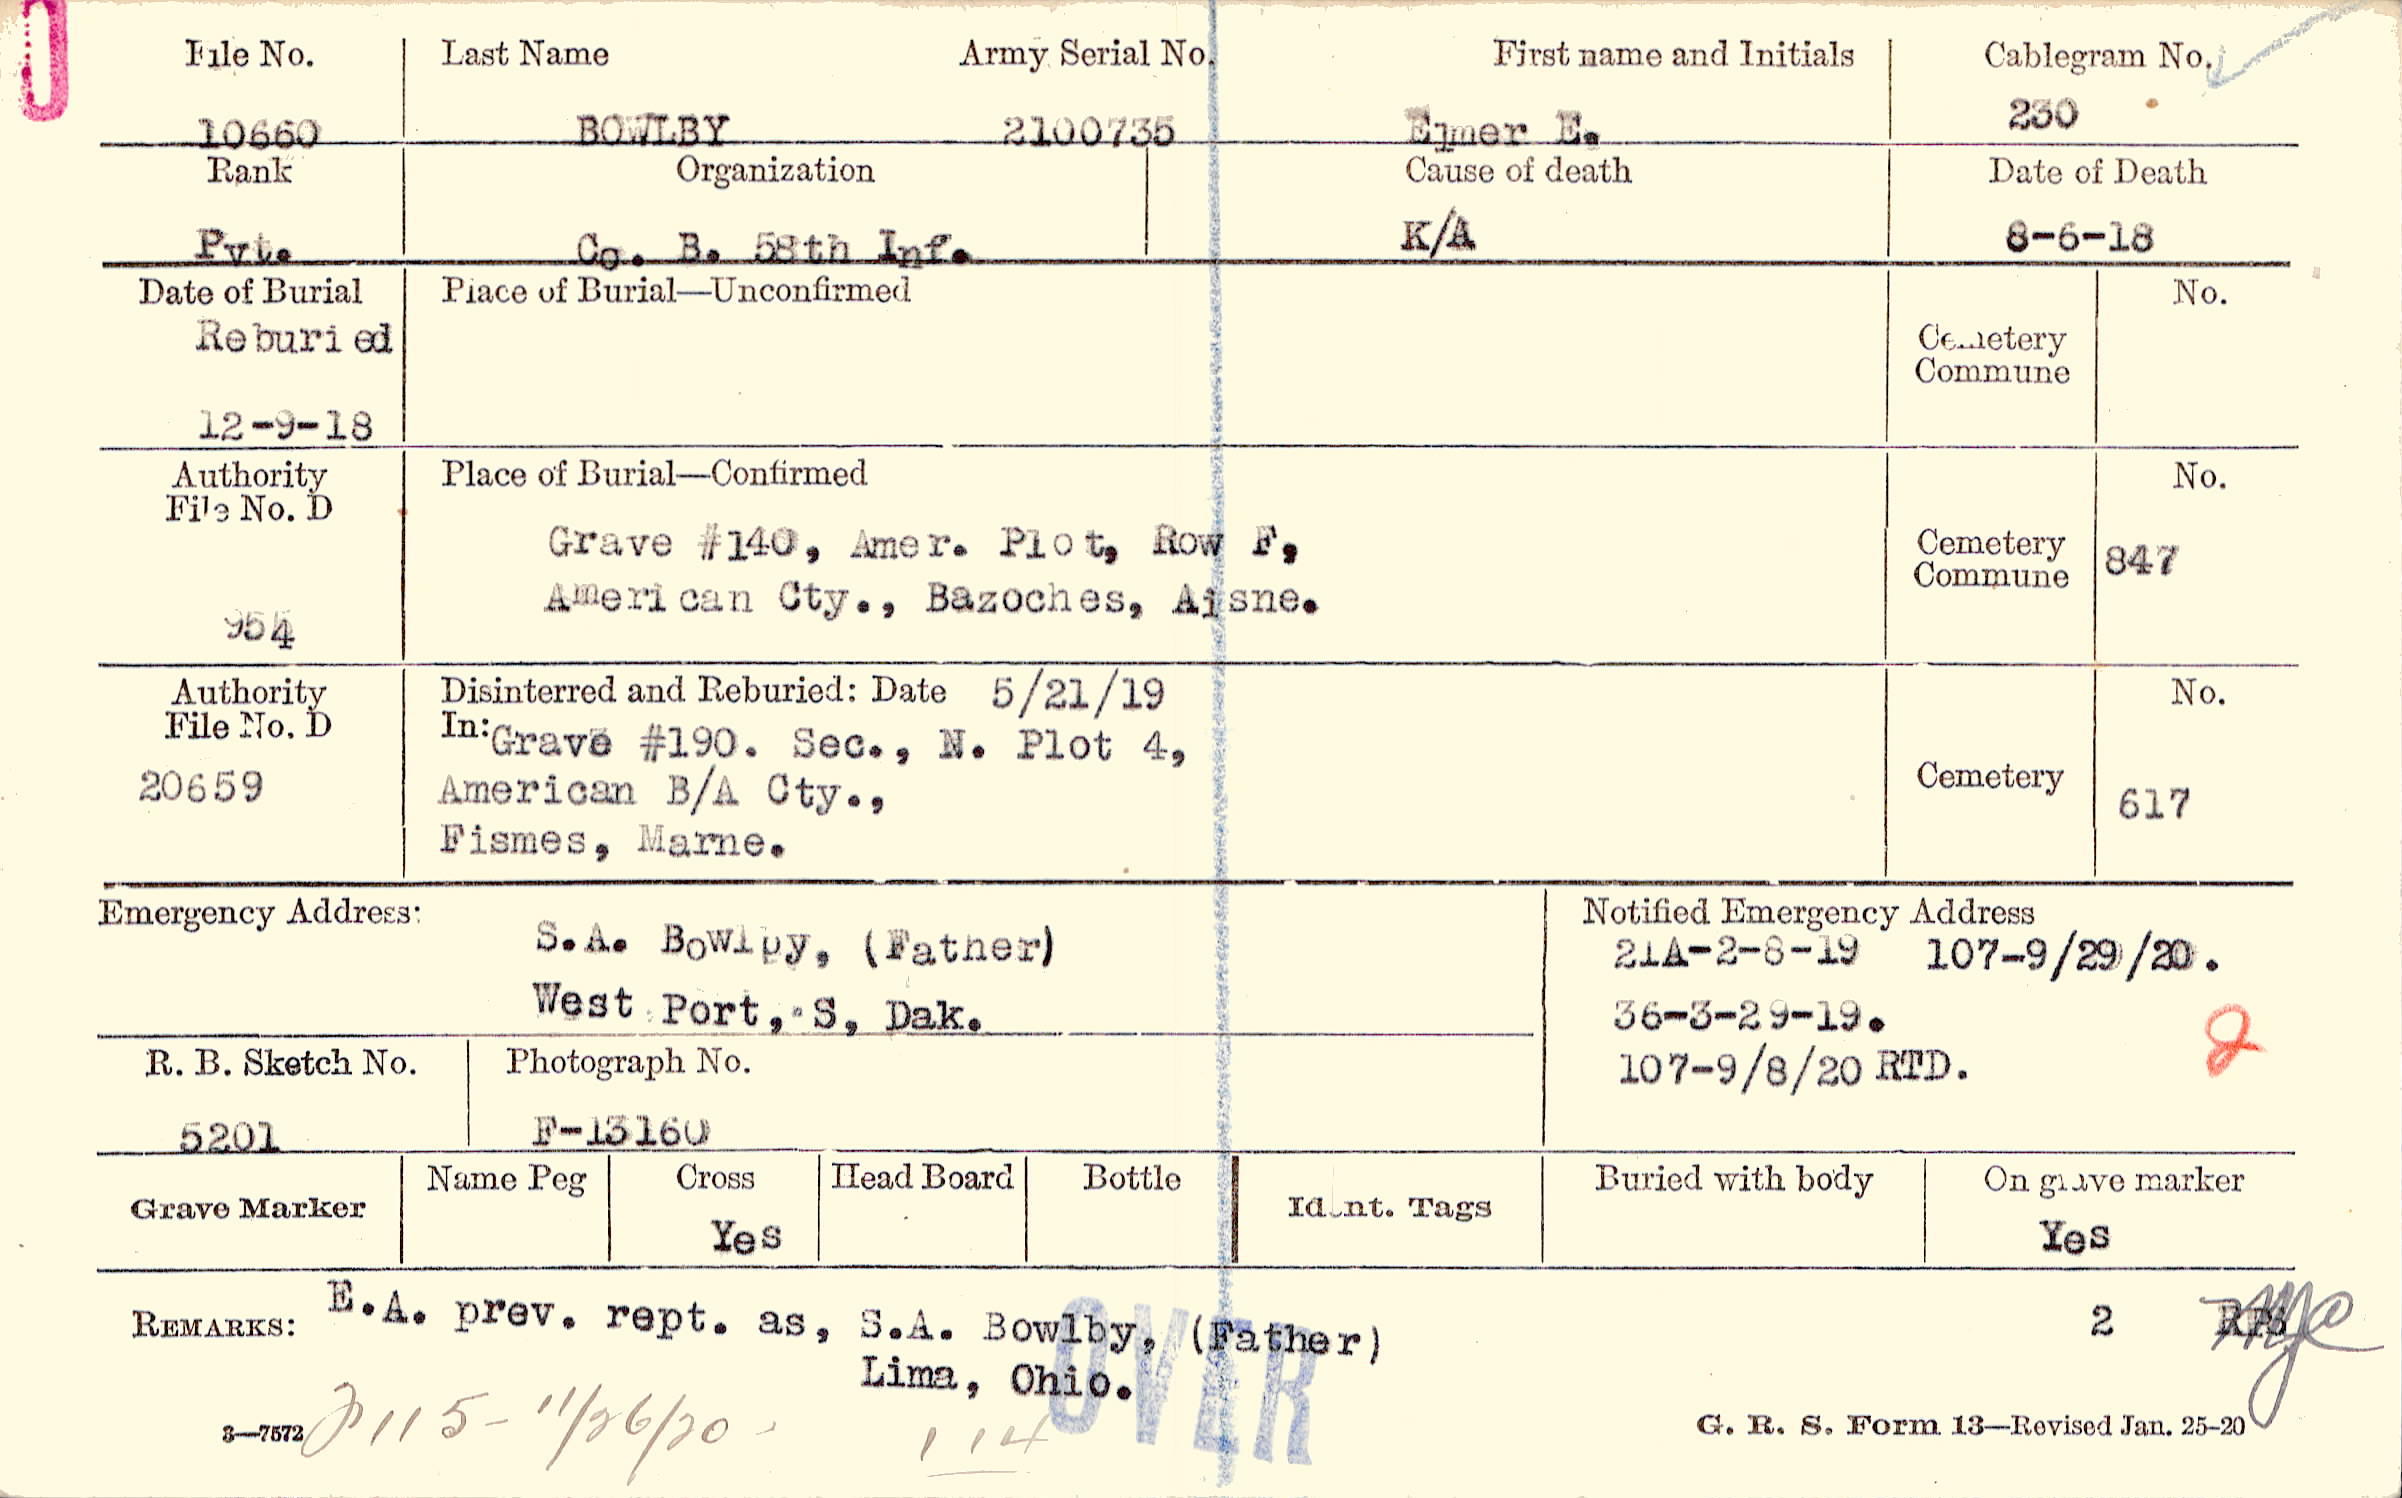 File No. Last Name Army Serial No. First name and Initials Cablegram No.
10660 BOWLBY 2100735 Elmer E. 230
Rank Organization Cause of death Date of Death
Pvt. Co. B. 58th Inf. K/A 8-6-18
Date of Burial Place of Burial—Unconfirmed No.
Reburied Cemetery
Commune
12-9-18
Authority Place of Burial—Confirmed No.
File No. D
Grave #140, Amer. Plot, Row F, Cemetery
Commune 847
American Cty., Bazoches, Aisne.
954
Authority Disinterred and Reburied: Date 5/21/19 No.
File No. D In: Grave #190. Sec., N. Plot 4,
20659 American B/A Cty., Cemetery 617
Fismes, Marne.
Emergency Address: Notified Emergency Address
S.A. Bowlby, (Father) 21A-2-8-19 107-9/29/20.
West Port, S, Dak. 36-3-29-19. 2
R. B. Sketch No. Photograph No. 107-9/8/20 RTD.
5201 F-13160
Grave Marker Name Peg Cross Head Board Bottle Ident. Tags Buried with body On grave marker
Yes Yes
REMARKS: E.A. prev. rept. as, S.A. Bowlby, (Father) 2
Lima, Ohio.
OVER
3—7572 115-11/26/20- 114 G. R. S. Form 13—Revised Jan. 25-20